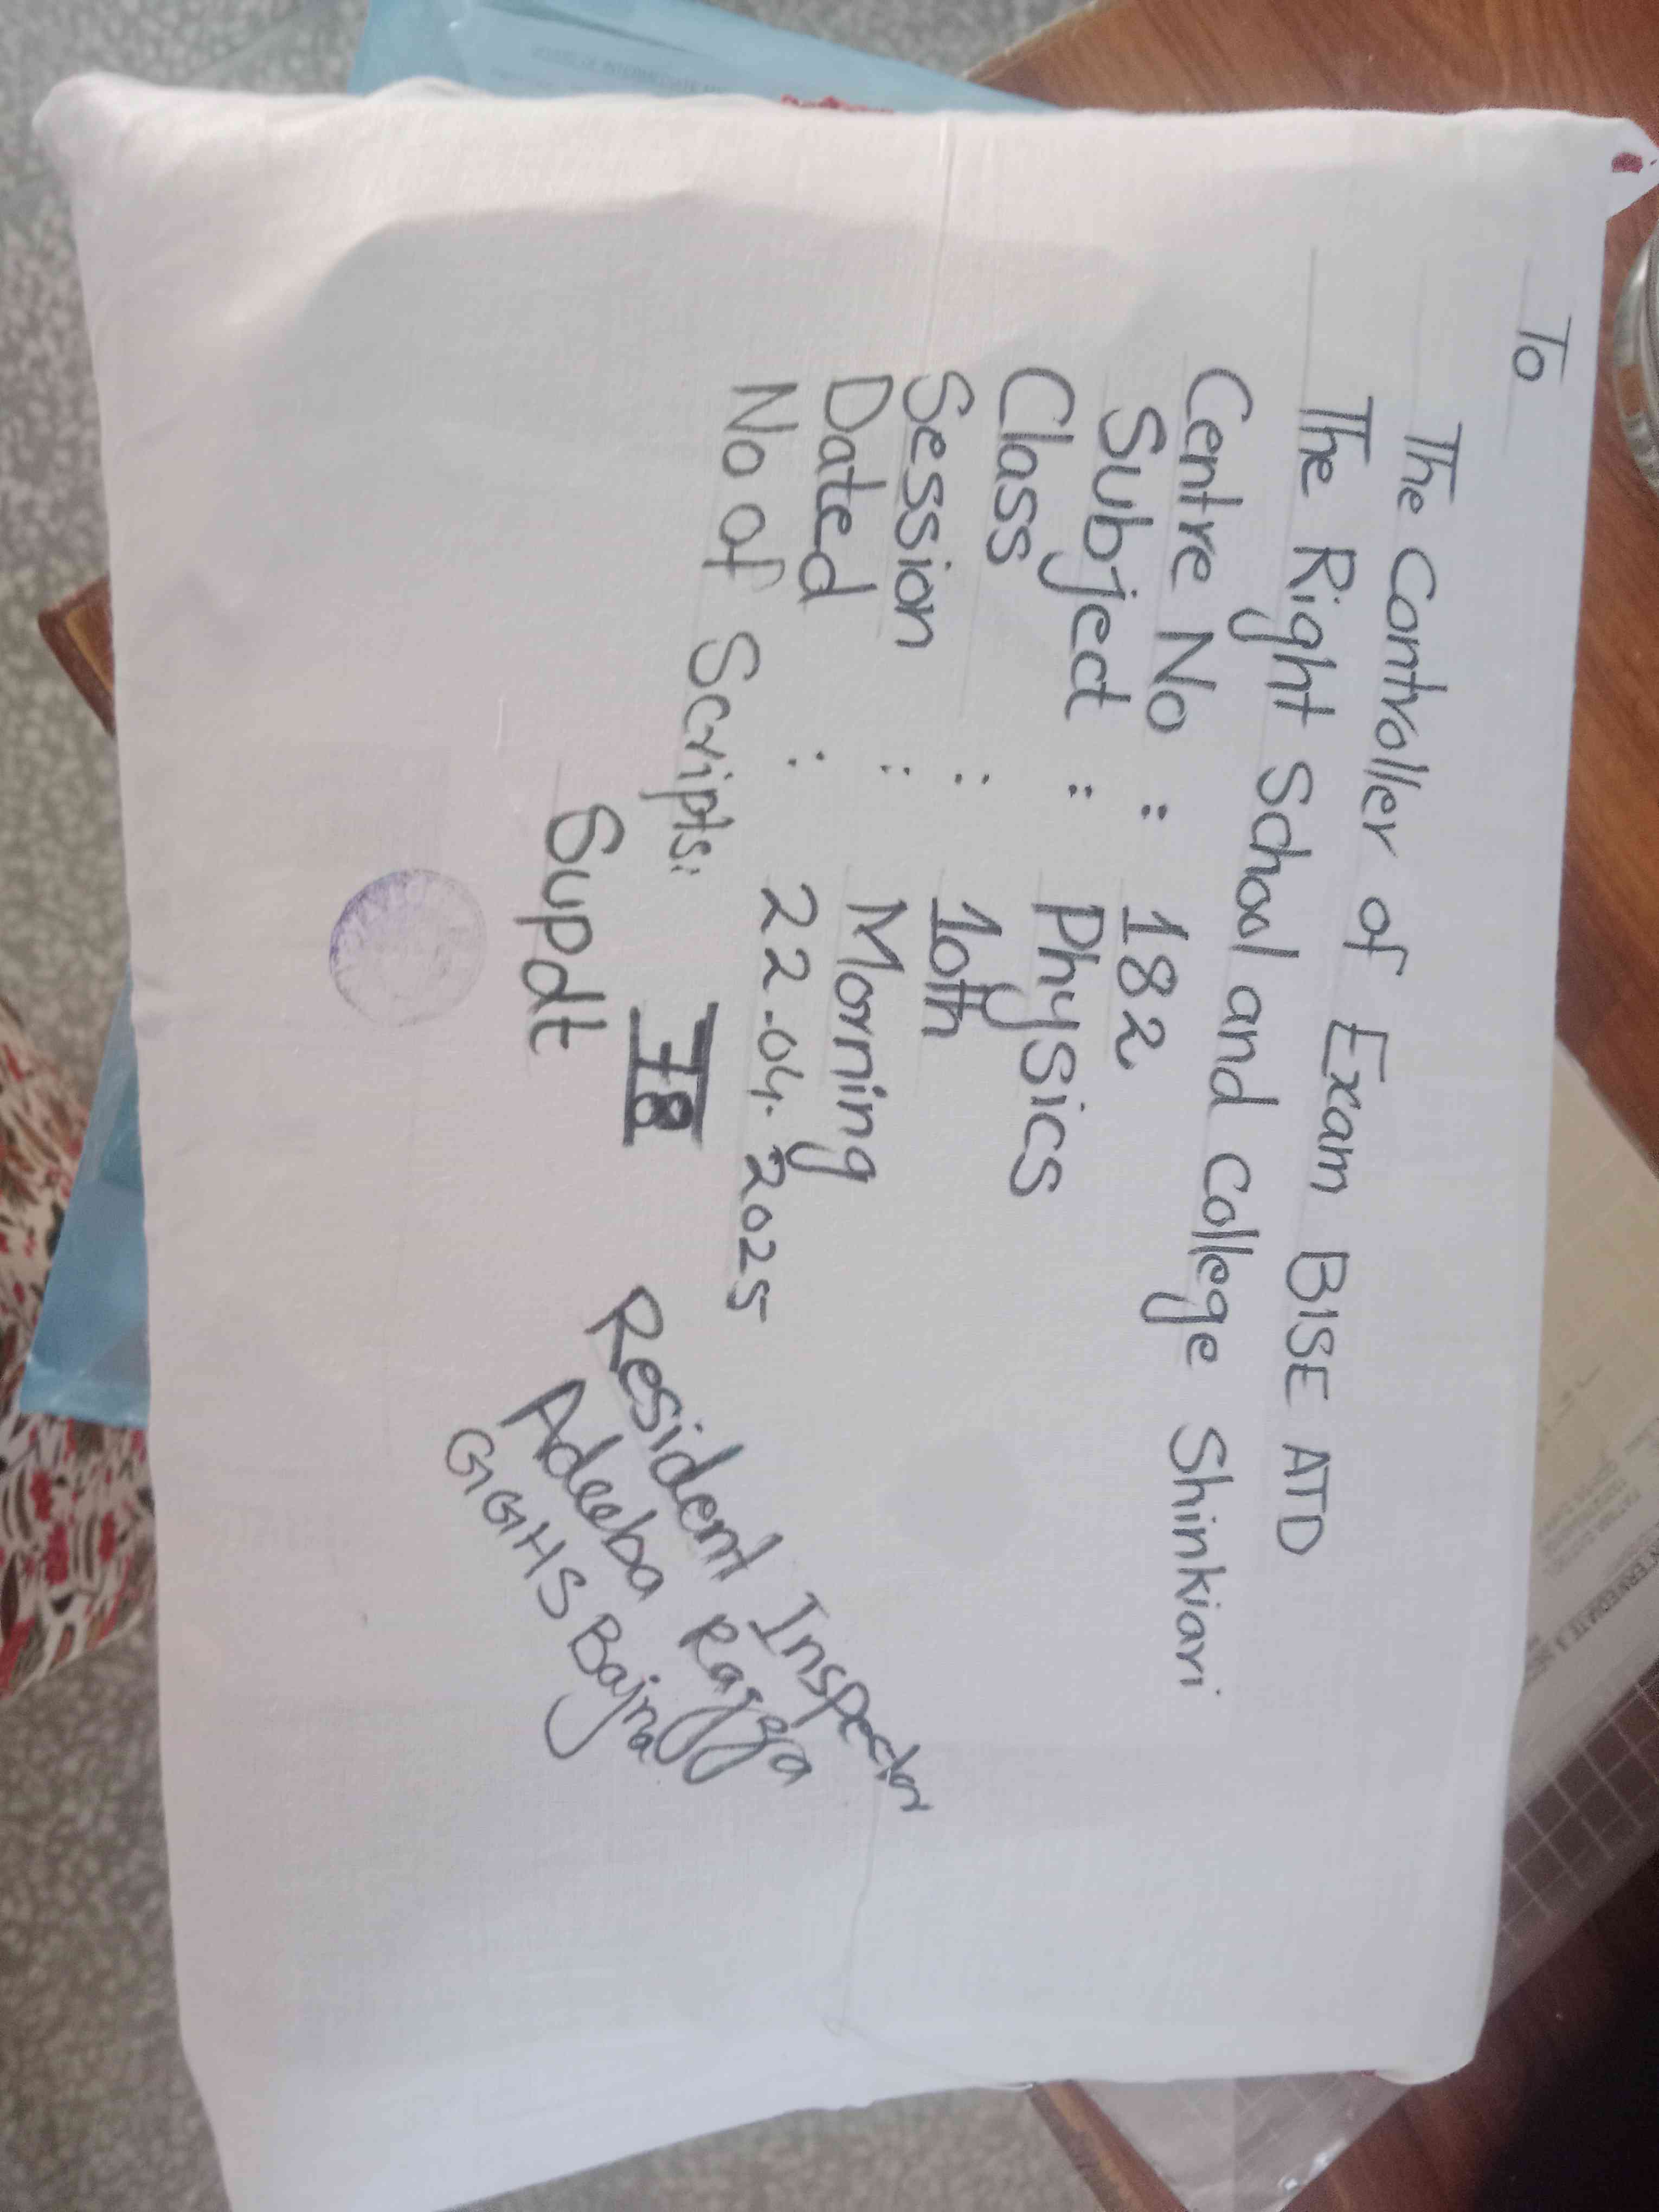 To
The Controller of Exam BISE ATD
The Right School and College Shinkiari
Centre No : 182
Subject : Physics
Class : 10th
Session : Morning
Dated : 22.04.2025
No of Scripts: 78
Supdt
Resident Inspector
Adeeba Razza
GGHS Bajna